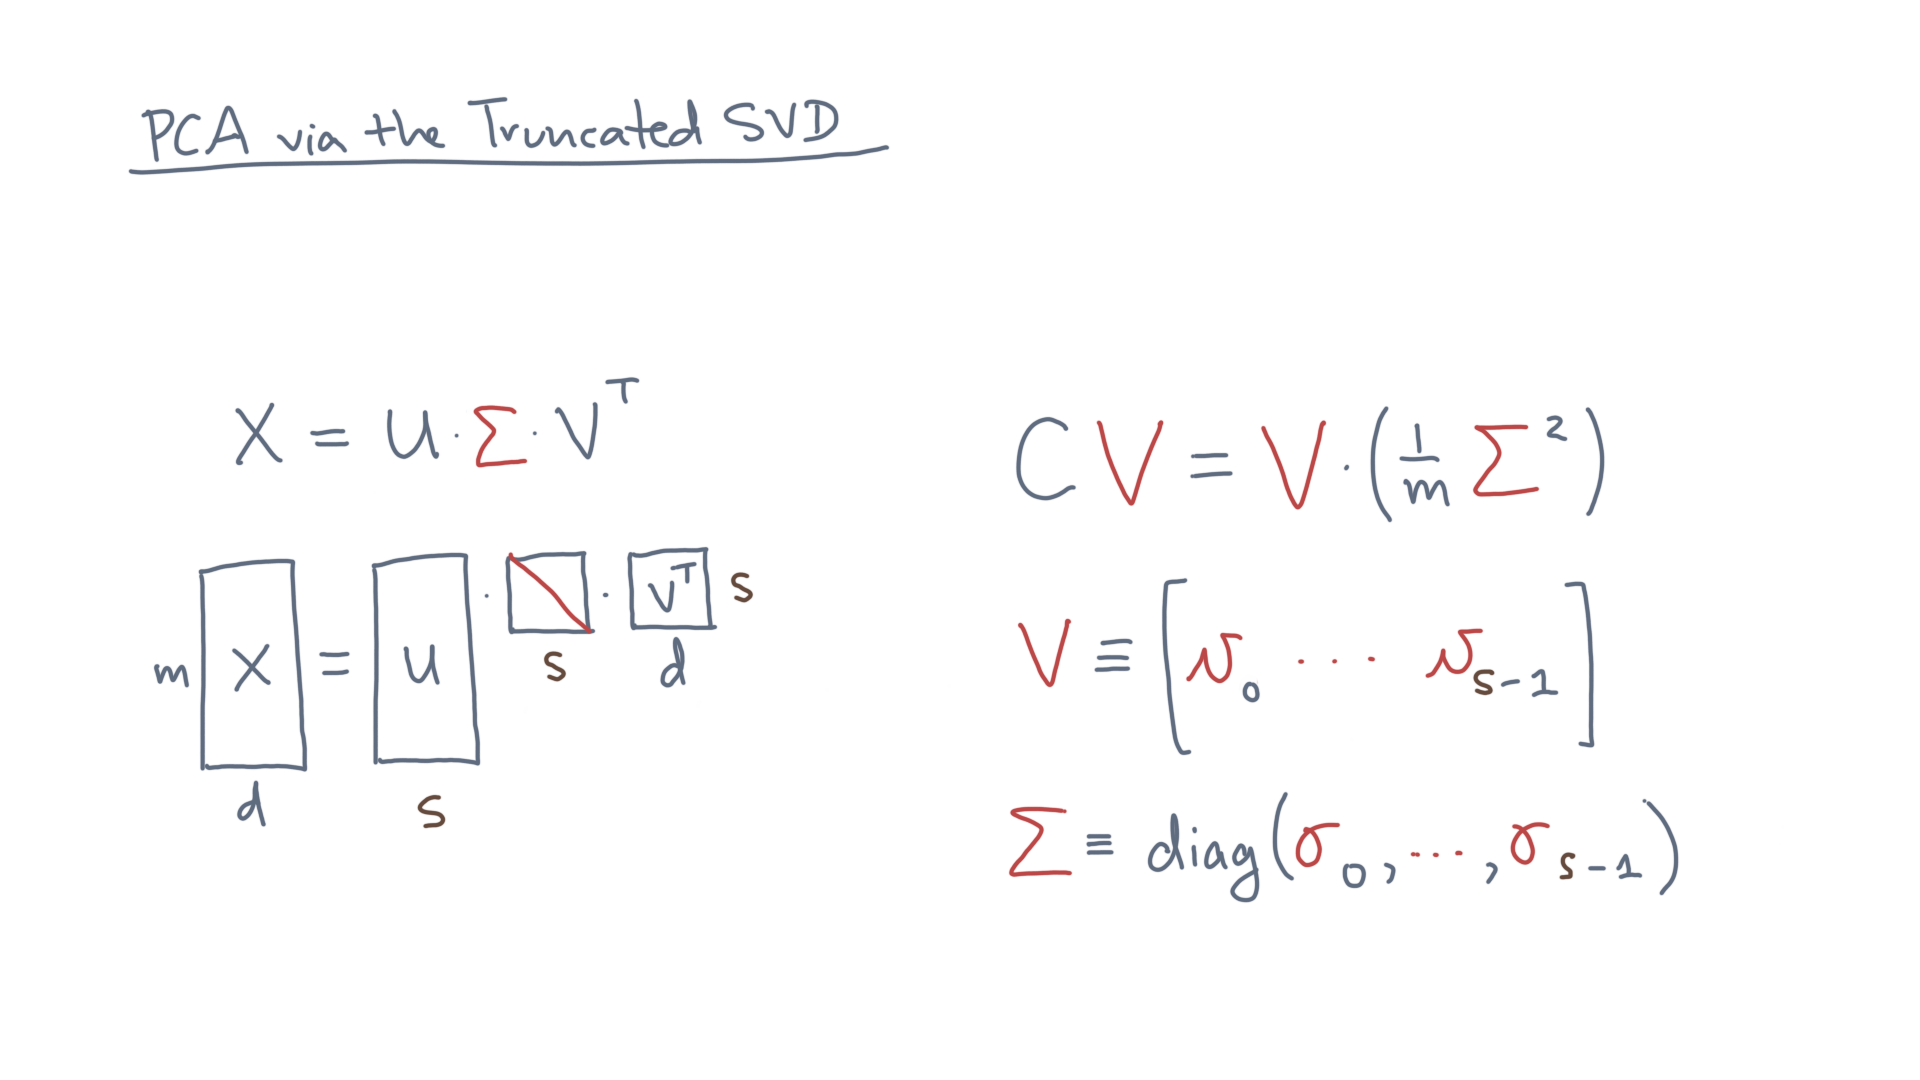 PCA via the Truncated SVD
X = U · Σ · Vᵀ
m X = U · · Vᵀ s
s d
d s
C V = V · (1/m Σ²)
V ≡ [v₀ ··· vₛ₋₁]
Σ ≡ diag(σ₀, ..., σₛ₋₁)